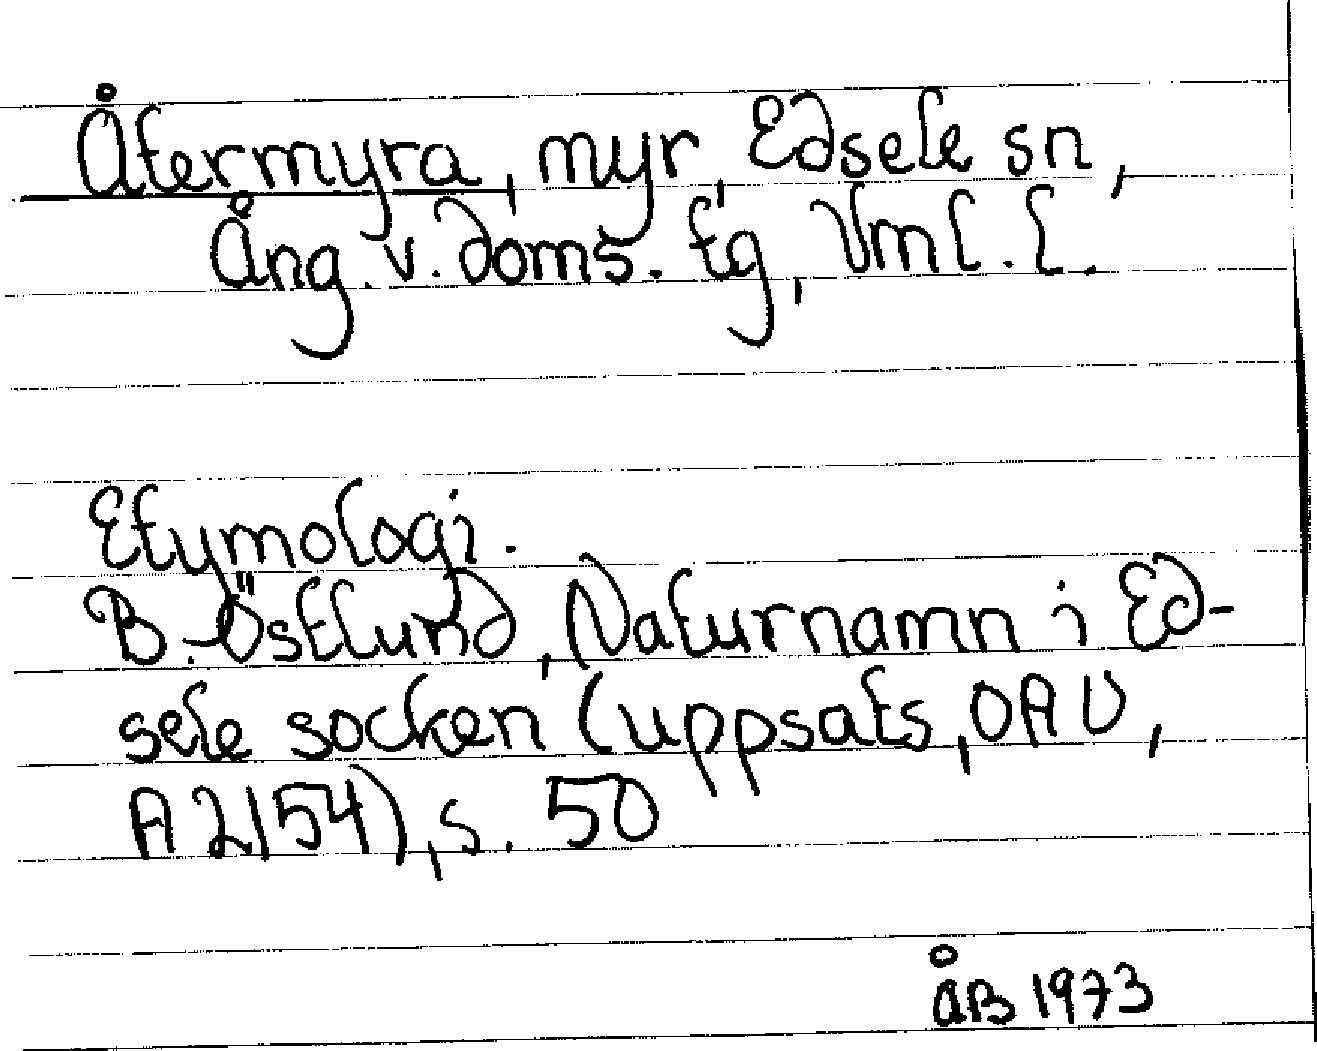 Återmyra, myr, Edsele sn,
Ång. v. doms. tg, Vml. l.
Etymologi.
B. Östlund, Naturnamn i Ed-
sele socken (uppsats, OAU,
A2154), s. 50
ÅB 1973